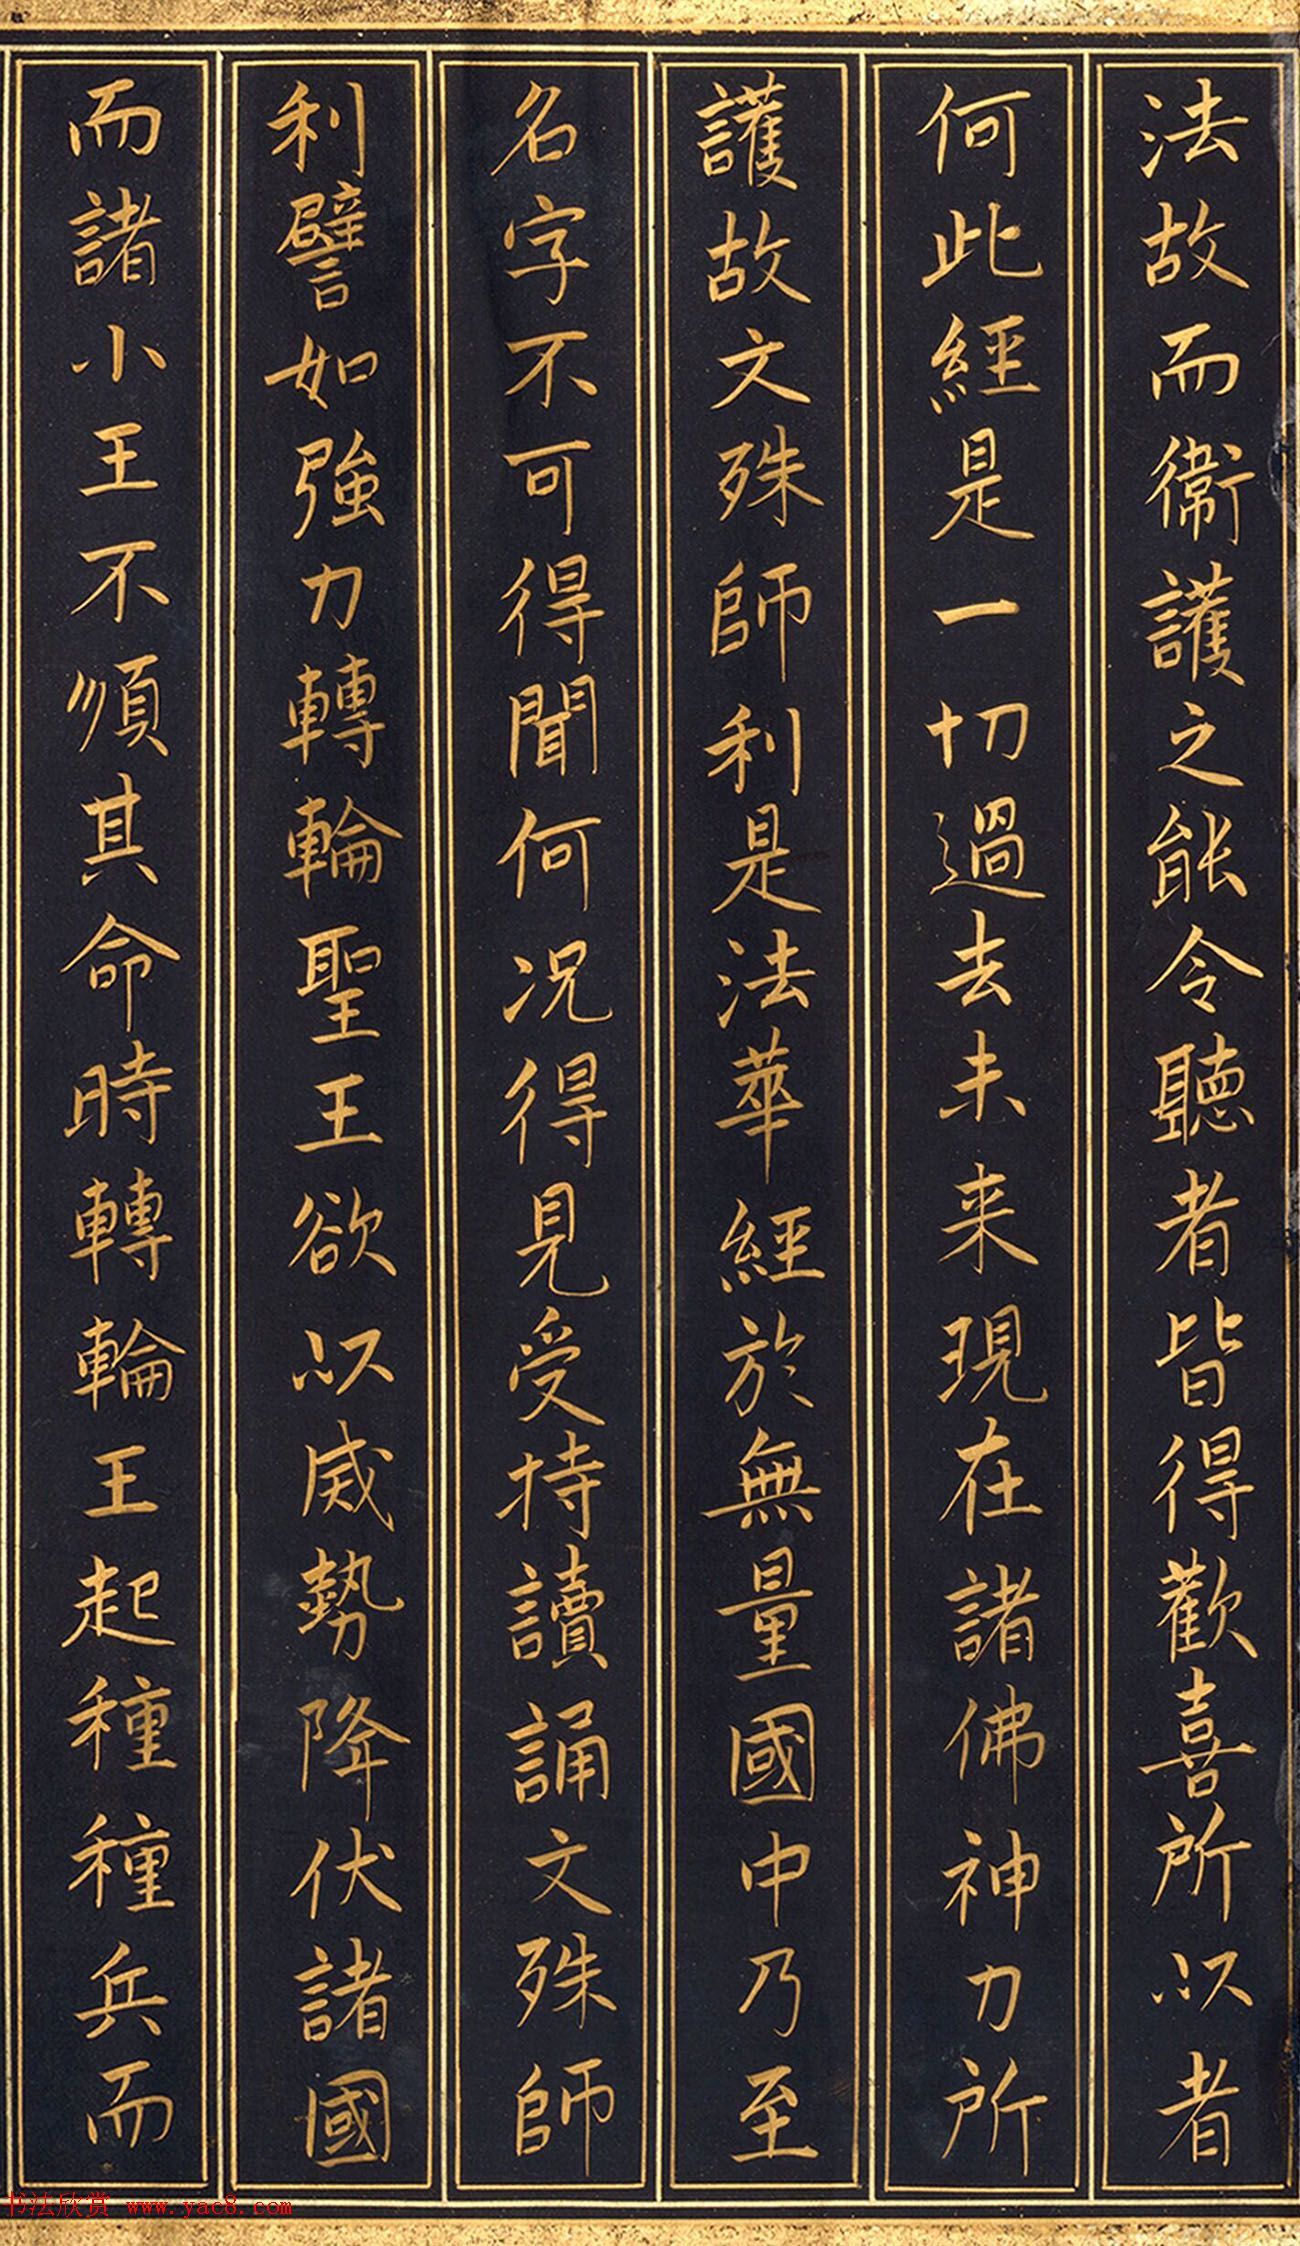 法故而衞護之能令聽者皆得歡喜所以者
何此經是一切過去未来現在諸佛神力所
護故文殊師利是法華經於無量國中乃至
名字不可得聞何况得見受持讀誦文殊師
利譬如強力轉輪聖王欲以威勢降伏諸國
而諸小王不順其命時轉輪王起種種兵而
书法欣赏 www.yac8.com